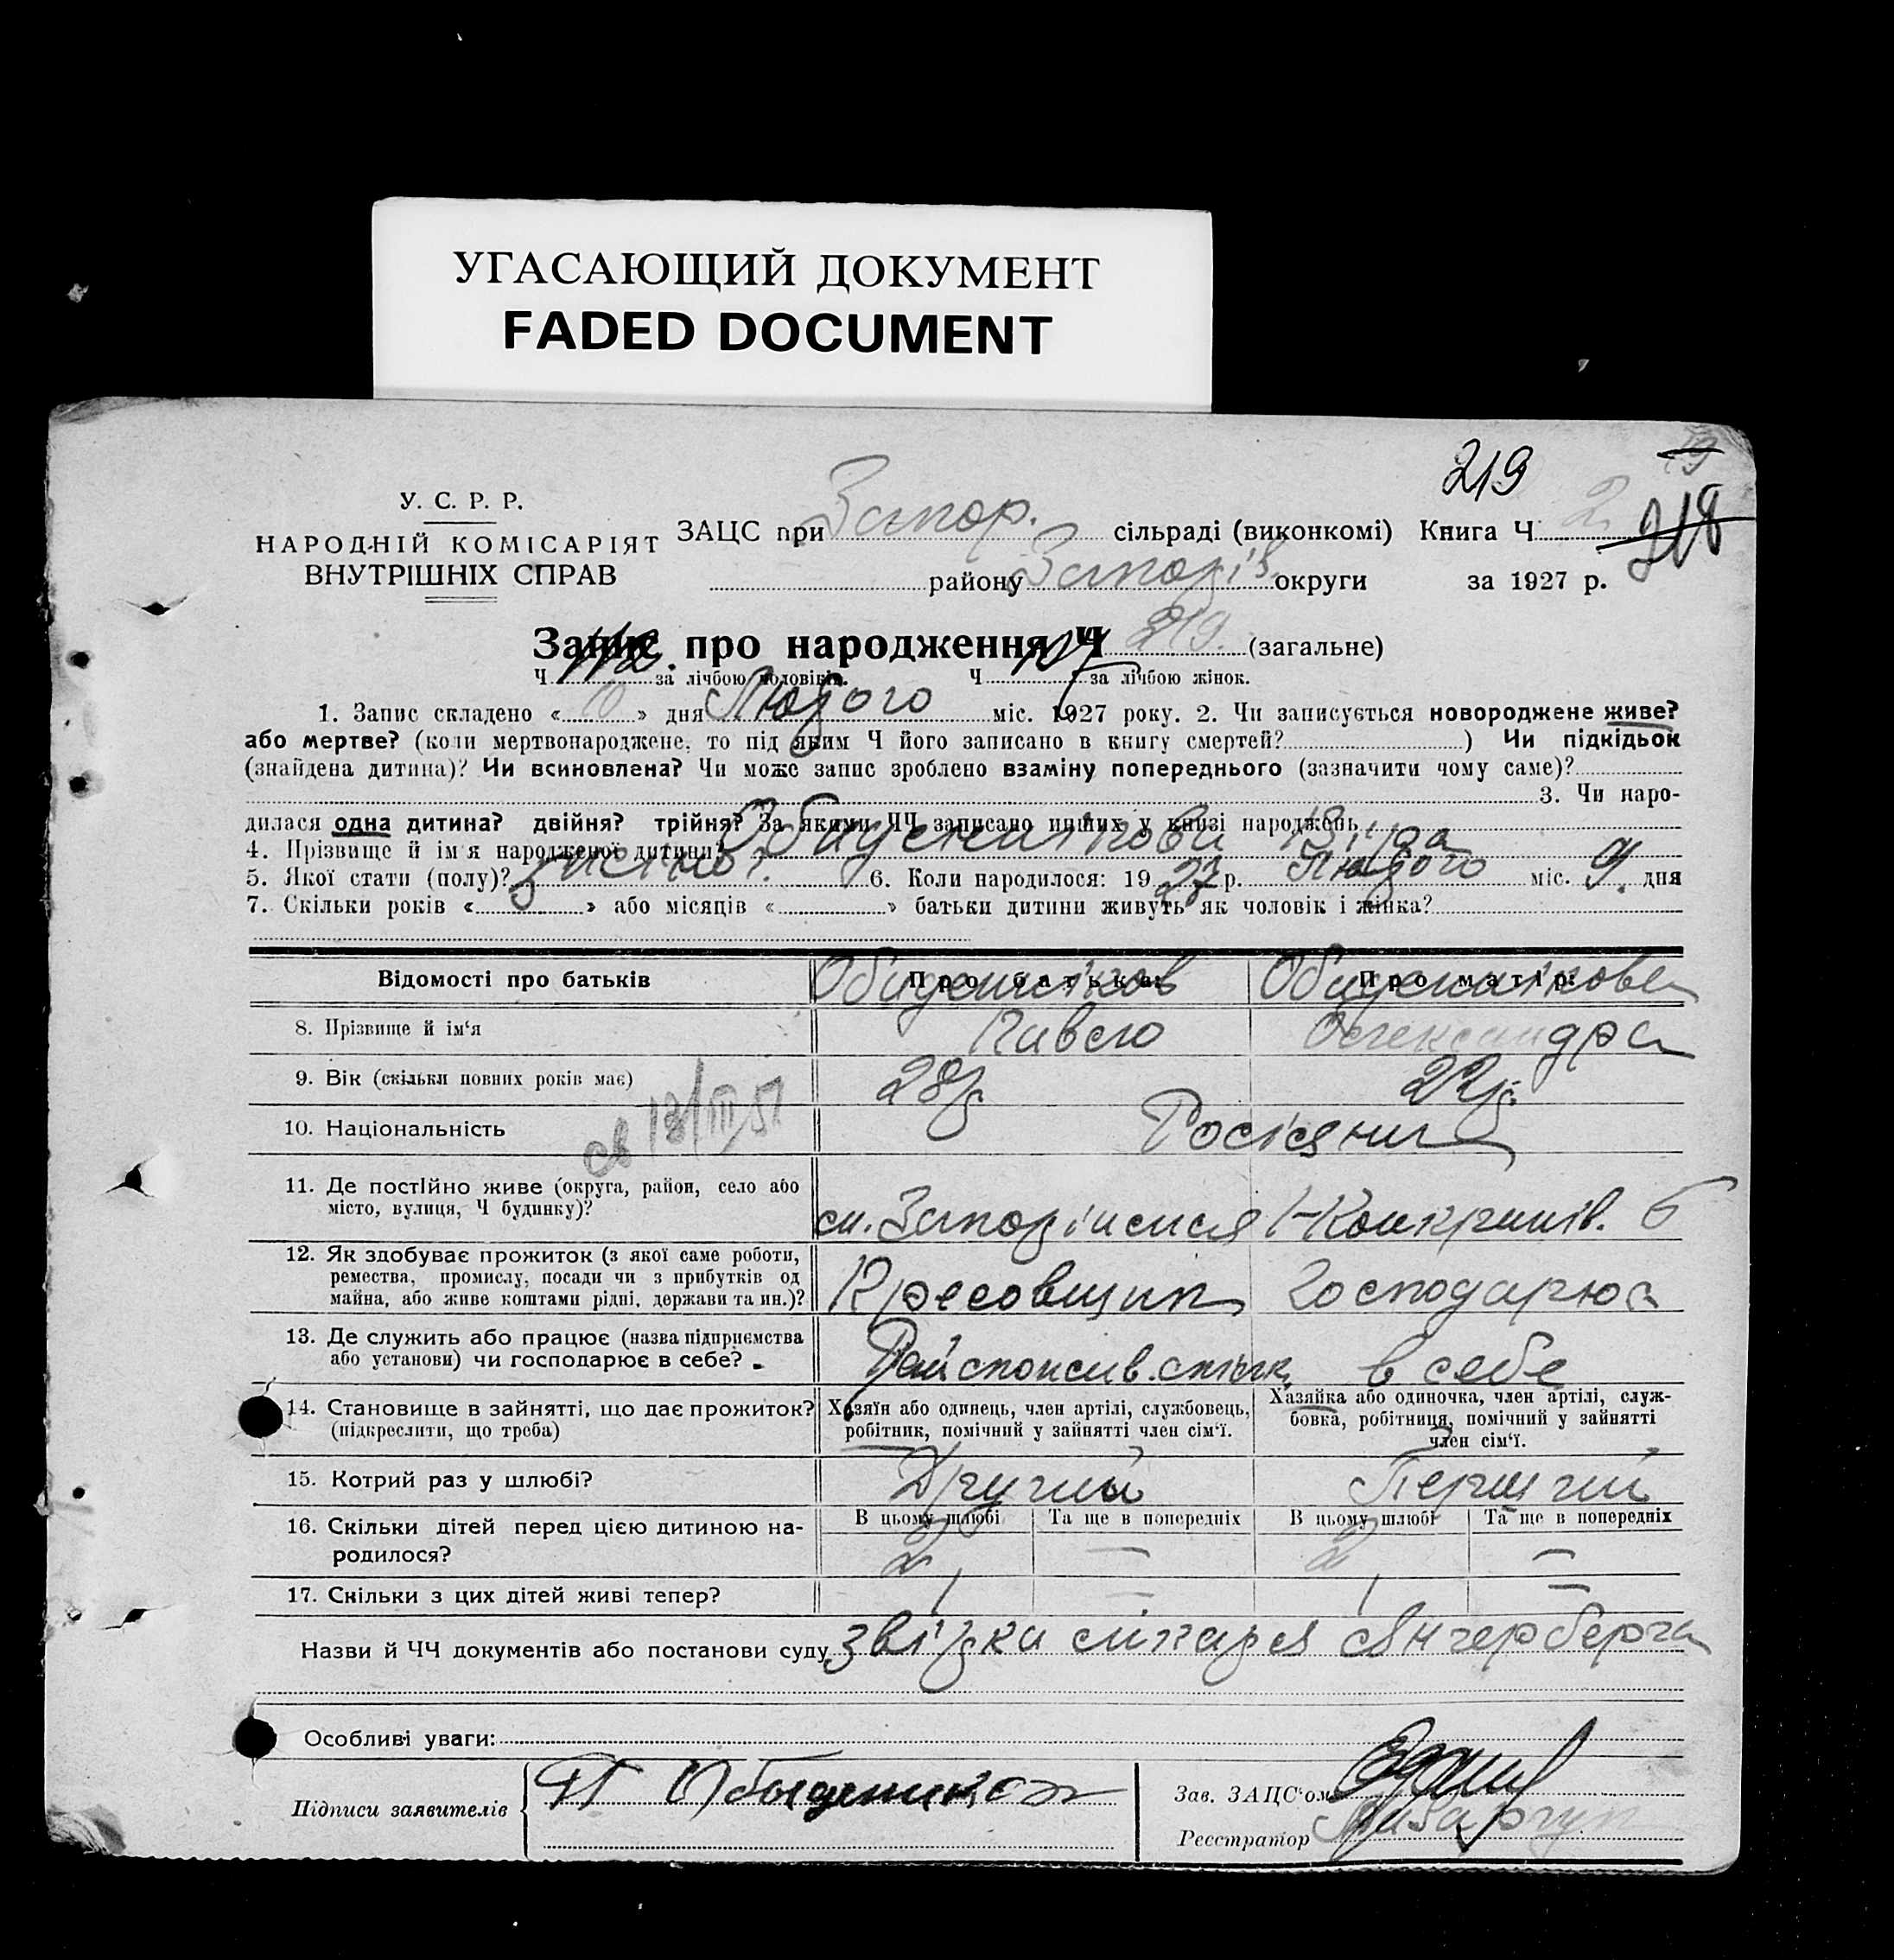 УГАСАЮЩИЙ ДОКУМЕНТ
FADED DOCUMENT
219
У. С. Р. Р.
НАРОДНІЙ КОМІСАРІЯТ
ВНУТРІШНІХ СПРАВ
ЗАЦС при Запор. сільраді (виконкомі) Книга Ч 2 218
району Запоріз. округи за 1927 р.
Запис про народження Ч 219. (загальне)
Ч 112. за лічбою чоловіків. Ч 107 за лічбою жінок.
1. Запис складено « » дня Лютого міс. 1927 року. 2. Чи записується новороджене живе?
або мертве? (коли мертвонароджене, то під яким Ч його записано в книгу смертей? ) Чи підкідьок
(знайдена дитина)? Чи всиновлена? Чи може запис зроблено взаміну попереднього (зазначити чому саме)?
3. Чи наро-
дилася одна дитина? двійня? трійня? За якими ЧЧ записано инших у книзі народжень
4. Прізвище й ім'я народженої дитини?
5. Якої стати (полу)? жіночої. 6. Коли народилося: 1927 р. Лютого міс. 9. дня
7. Скільки років « » або місяців « » батьки дитини живуть як чоловік і жінка?
Відомості про батьків Про батька: Про матір:
Обиденників Обиденникова
8. Прізвище й ім'я Павло Олександра
9. Вік (скільки повних років має) 28 р. 22 р.
10. Національність Росіяни
св 13/III 51
11. Де постійно живе (округа, район, село або
місто, вулиця, Ч будинку)? м. Запоріжжя 6
12. Як здобуває прожиток (з якої саме роботи,
ремества, промислу, посади чи з прибутків од
майна, або живе коштами рідні, держави та ин.)? Господарює
13. Де служить або працює (назва підприємства
або установи) чи господарює в себе? Райспожив.спілк. в себе
14. Становище в зайнятті, що дає прожиток?
(підкреслити, що треба)
Хазяїн або одинець, член артілі, службовець,
робітник, помічний у зайнятті член сім'ї.
Хазяйка або одиночка, член артілі, служ-
бовка, робітниця, помічний у зайнятті
член сім'ї.
15. Котрий раз у шлюбі? Другий Перший
В цьому шлюбі Та ще в попередніх В цьому шлюбі Та ще в попередніх
16. Скільки дітей перед цією дитиною на-
родилося? 2 — 2 —
17. Скільки з цих дітей живі тепер? 1 — 1 —
Назви й ЧЧ документів або постанови суду звістка лікаря
Особливі уваги:
Підписи заявителів П Обыденников
Зав. ЗАЦС'ом
Реєстратор